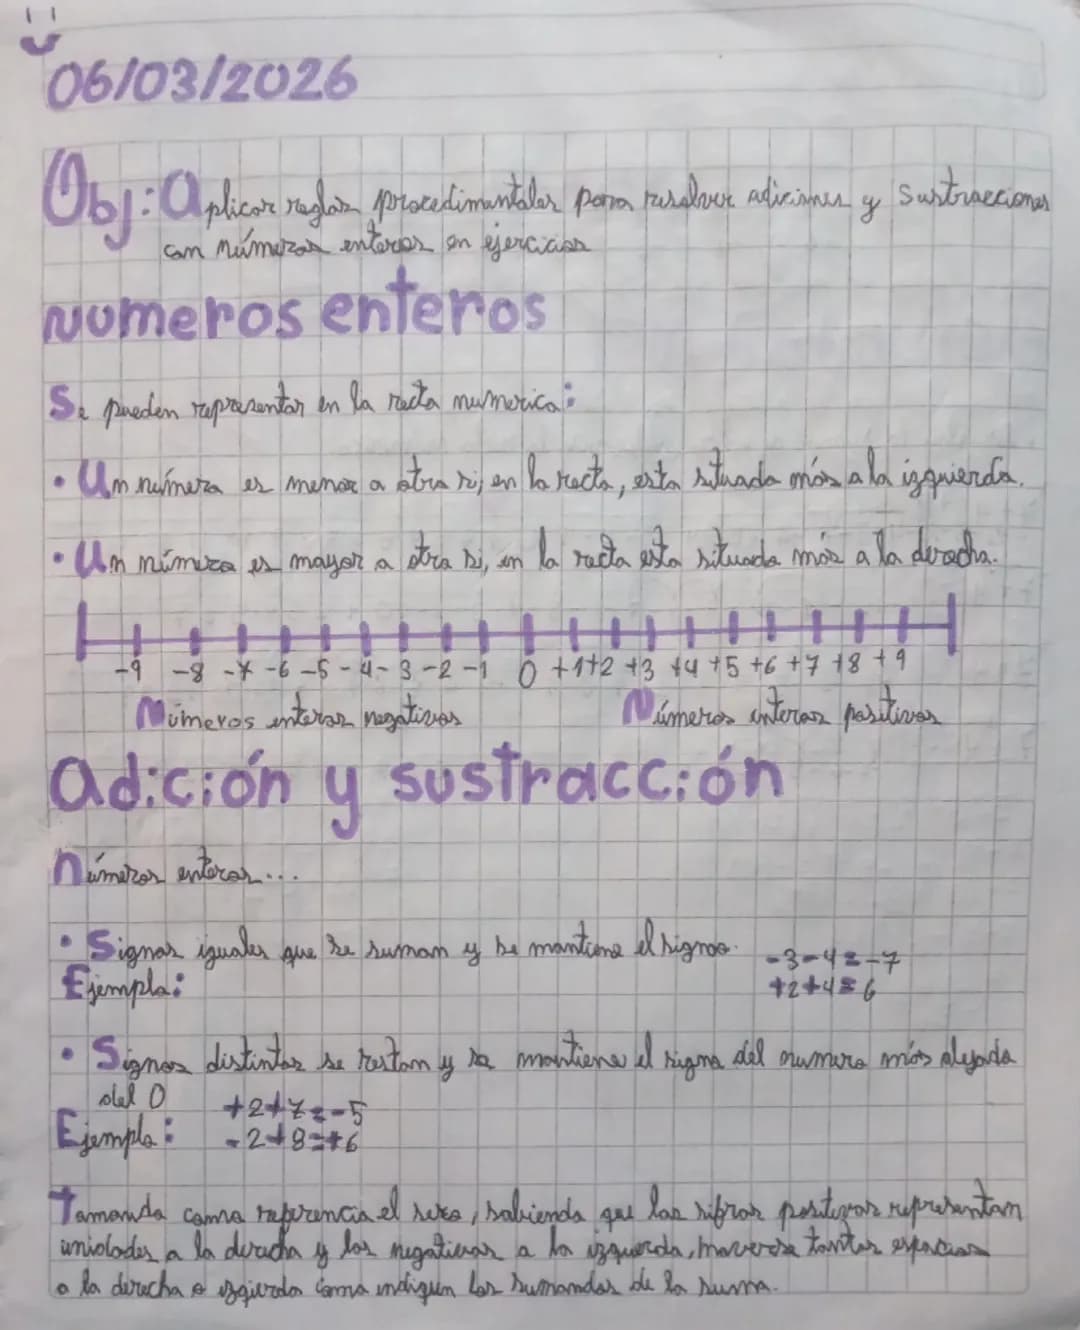 06/03/2026
Obj: Aplicar reglas procedimentales para resolver adiciones y Sustracciones
con números enteros en ejercicios
Numeros enteros
Se pueden representar en la recta numerica:
• Un número es menor a otro si, en la recta, esta situado más a la izquierda.
• Un número es mayor a otro si, en la recta esta situado más a la derecha.
-9 -8 -7 -6 -5 -4 -3 -2 -1 0 +1 +2 +3 +4 +5 +6 +7 +8 +9
Números enteros negativos Números enteros positivos
Adición y sustracción
Números enteros...
• Signos iguales que se suman y se mantiene el signo.
-3-4=-7
Ejemplo:
+2+4=6
• Signos distintos se restan y se mantiene el signo del numero más alejado
del 0
+2+7=-5
Ejemplo:
-2+8=+6
Tomando como referencia el sero, sabiendo que las sifras positivas representan
unidades a la derecha y los negativos a la izquierda, moverse tantos espacios
a la derecha o izquierda como indiquen los sumandos de la suma.